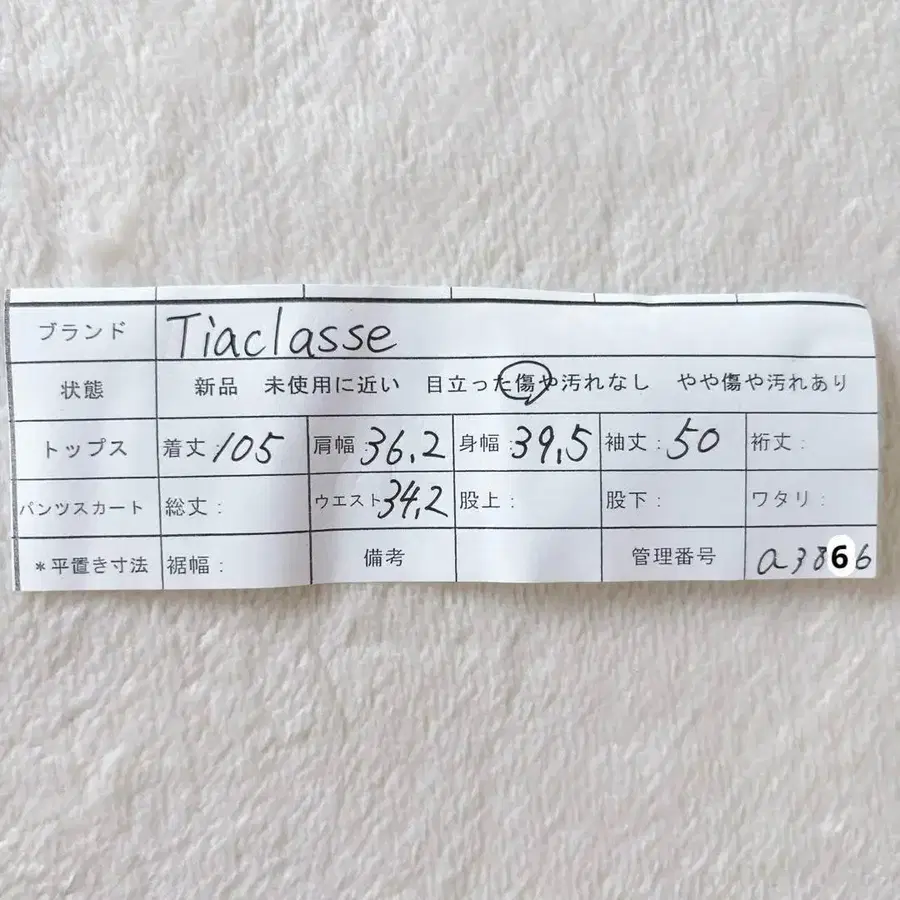 ブランド Tiaclasse
状態 新品 未使用に近い 目立った傷や汚れなし やや傷や汚れあり
トップス 着丈:105 肩幅:36.2 身幅:39.5 袖丈:50 裄丈:
パンツスカート 総丈: ウエスト34.2 股上: 股下: ワタリ:
*平置き寸法 裾幅: 備考 管理番号 a3866